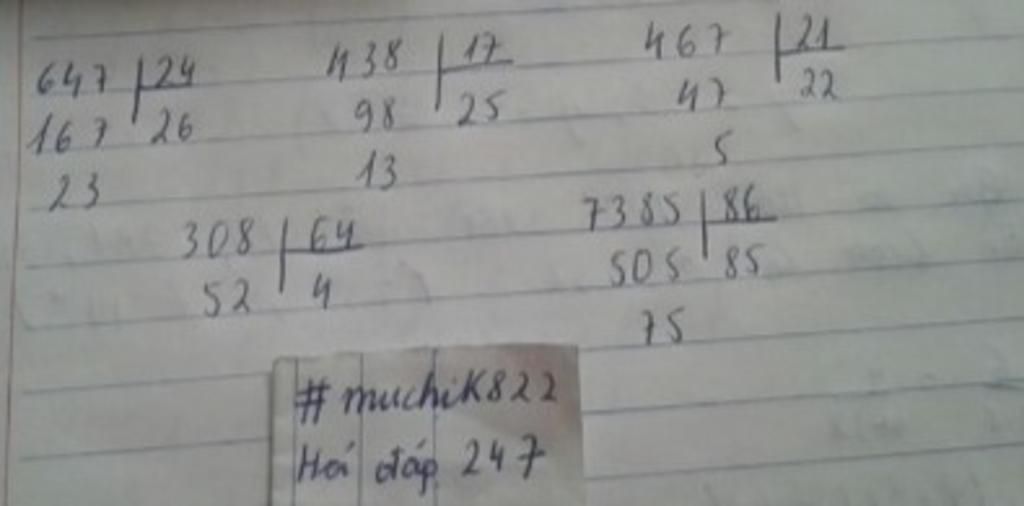 647 24 438 17 467 21
167 26 98 25 47 22
23 13 5
308 64 7385 86
52 4 505 85
75
#muchiK822
Hỏi đáp 247